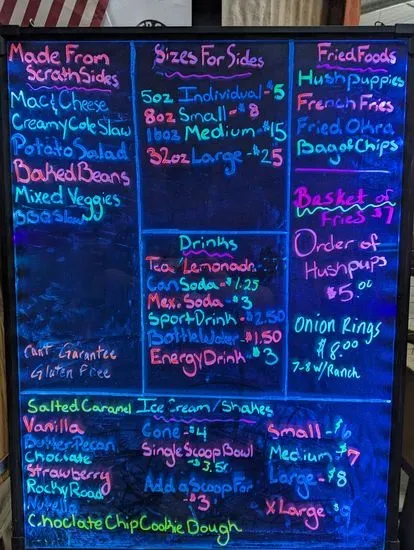 Made From
Scrath Sides
Mac & Cheese
Creamy Cole Slaw
Potato Salad
Baked Beans
Mixed Veggies
BBQ Slaw
Cant Garantee
Gluten Free
Sizes For Sides
5oz Individual - $5
8oz Small - $8
16oz Medium - $15
32oz Large - $25
Drinks
Tea/Lemonade
Can Soda - $1.25
Mex. Soda - $3
Sport Drink - $2.50
Bottle Water - $1.50
Energy Drink - $3
Fried Foods
Hushpuppies
French Fries
Fried Okra
Bag of Chips
Basket of
Fries $7
Order of
Hushpups
$5.00
Onion Rings
$8.00
7-8 w/Ranch
Ice Cream/Shakes
Salted Caramel
Vanilla
Butter Pecan
Choclate
Strawberry
Rocky Road
Nutella
Choclate Chip Cookie Dough
Cone - $4
Single Scoop Bowl
- $3.50
Add a Scoop For
- $3
Small - $6
Medium - $7
Large - $8
X Large - $9